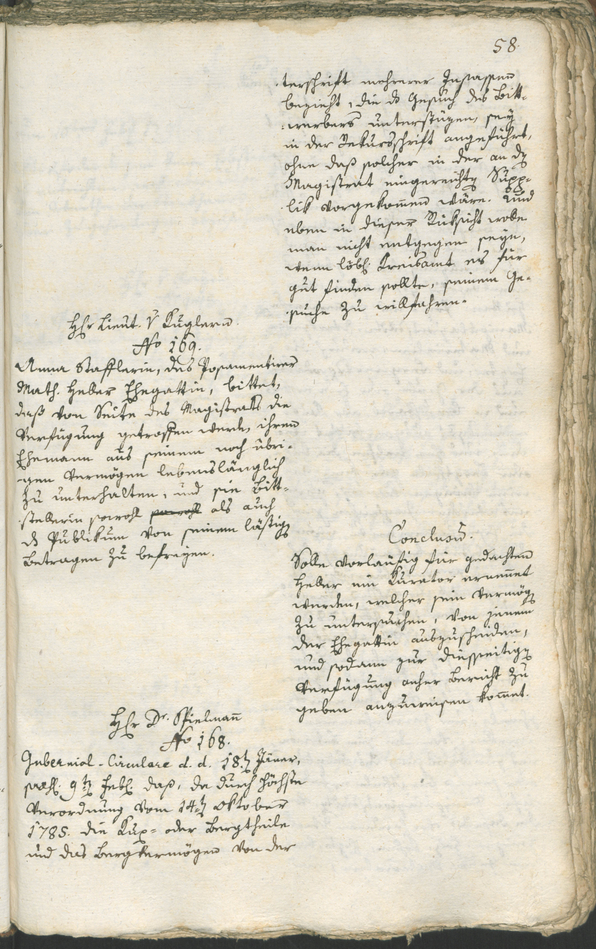 58.
terschrift mehrerer Insassen
bezieht, die ds Gesuch des Bitt-
werbers unterstüzen, sey
in der Rekursschrift angeführt,
ohne daß solcher in der an den
Magistrat eingereichten Supp-
lik vorgekommen wäre. Und
eben in dieser Rüksicht wolle
man nicht entgegen seyn,
wenn löbl. Kreisamt es für
gut finden sollte, seinem Ge-
suche zu willfahren.
Hhr Lieut. v Kuglern
No 169.
Anna Stafflerin, des Posamentirer
Math. Heber Ehegattin, bittet,
daß von Seite des Magistrats die
Verfügung getroffen werde, ihren
Ehemann aus seinem noch übri-
gen Vermögen lebenslänglich
zu unterhalten, und sie Bitt-
stellerin sowohl als auch
ds Publikum von seinem lästigen
Betragen zu befreyen.
Conclusum.
Solle vorläufig für gedachten
Heber ein Kurator ernennet
werden, welcher sein Vermögen
zu untersuchen, von jenem
der Ehegattin auszuscheiden,
und sodann zur diesseitigen
Verfügung anher Bericht zu
geben anzuweisen kommet.
Hhr Dr. Spielmann
No 168.
Gubernial-Circulare d. d. 18ten Jäner,
9ten Febr. daß, da durch höchste
Verordnung vom 14ten Oktober
1785. die Kux- oder Bergtheile
und das Bergvermögen von der